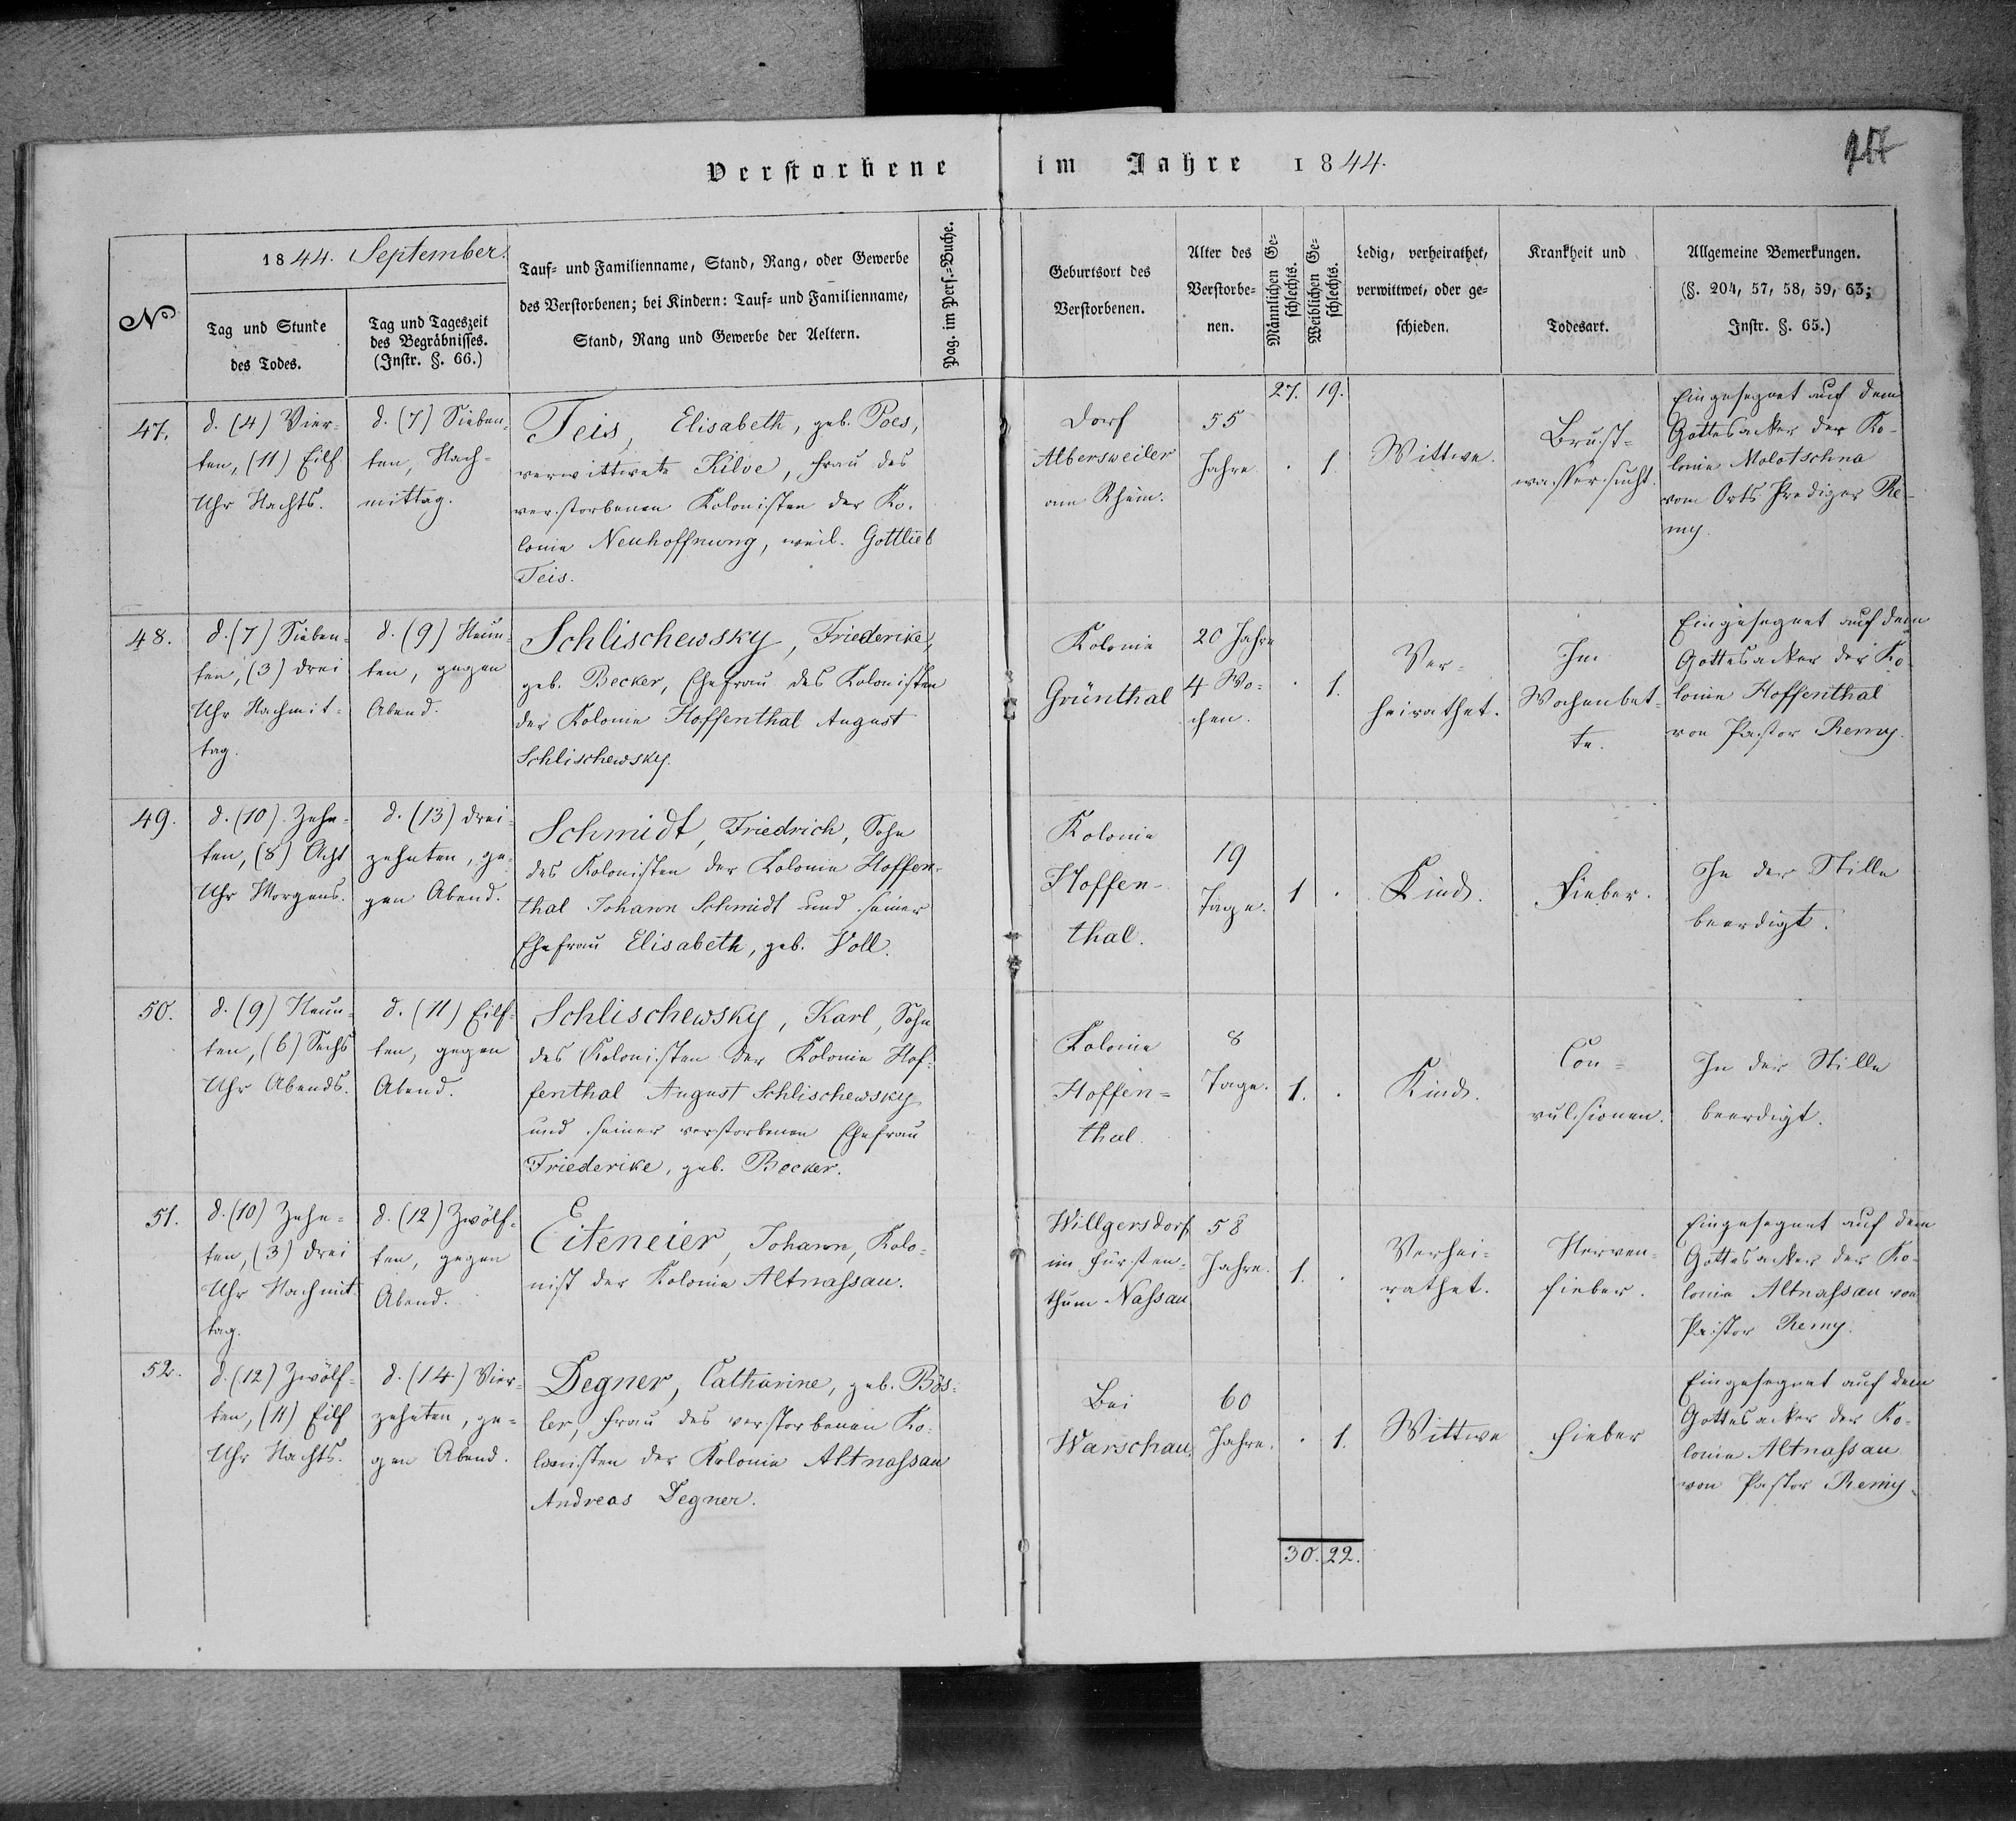 Verstorbene im Jahre 1844.
No
1844. September.
Tag und Stunde
des Todes.
Tag und Tageszeit
des Begräbnisses.
(Instr. §. 66.)
Tauf- und Familienname, Stand, Rang, oder Gewerbe
des Verstorbenen; bei Kindern: Tauf- und Familienname,
Stand, Rang und Gewerbe der Aeltern.
Pag. im Pers.-Buche.
Geburtsort des
Verstorbenen.
Alter des
Verstorbe-
nen.
Männlichen Ge-
schlechts.
Weiblichen Ge-
schlechts.
Ledig, verheirathet,
verwittwet, oder ge-
schieden.
Krankheit und
Todesart.
Allgemeine Bemerkungen.
(§. 204, 57, 58, 59, 63;
Instr. §. 65.)
27. 19.
47.
d. (4) Vier-
ten, (11) Eilf
Uhr Nachts.
d. (7) Sieben-
ten, Nach-
mittag.
Teis, Elisabeth, geb. Poes,
verwittwete Kilve, Frau des
verstorbenen Kolonisten der Ko-
lonie Neuhoffnung, weil. Gottlieb
Teis.
Dorf
Albersweiler
am Rhein.
55
Jahre.
. 1
Wittwe.
Brust-
wassersucht.
Eingesegnet auf dem
Gottesacker der Ko-
lonie Molotschna
vom Orts Prediger Re-
my.
48.
d. (7) Sieben-
ten, (3) drei
Uhr Nachmit-
tag.
d. (9) Neun-
ten, gegen
Abend.
Schlischewsky, Friederike,
geb. Becker, Ehefrau des Kolonisten
der Kolonie Hoffenthal August
Schlischewsky.
Kolonie
Grünthal
20 Jahre
4 Wo-
chen.
. 1.
Ver-
heirathet.
Im
Wochenbet-
te.
Eingesegnet auf dem
Gottesacker der Ko-
lonie Hoffenthal
von Pastor Remy.
49.
d. (10) Zehn-
ten, (8) Acht
Uhr Morgens.
d. (13) drei-
zehnten, ge-
gen Abend.
Schmidt, Friedrich, Sohn
des Kolonisten der Kolonie Hoffen-
thal Johann Schmidt und seiner
Ehefrau Elisabeth, geb. Voll.
Kolonie
Hoffen-
thal.
19
Tage.
1 .
Kind.
Fieber.
In der Stille
beerdigt.
50.
d. (9) Neun-
ten, (6) Sechs
Uhr Abends.
d. (11) Eilf-
ten, gegen
Abend.
Schlischewsky, Karl, Sohn
des Kolonisten der Kolonie Hof-
fenthal August Schlischewsky
und seiner verstorbenen Ehefrau
Friederike, geb. Becker.
Kolonie
Hoffen-
thal.
8
Tage.
1. .
Kind.
Con-
vulsionen.
In der Stille
beerdigt.
51.
d. (10) Zehn-
ten, (3) drei
Uhr Nachmit-
tag.
d. (12) Zwölf-
ten, gegen
Abend.
Eiteneier, Johann, Kolo-
nist der Kolonie Altnassau.
Willgersdorf
im Fürsten-
thum Nassau
58
Jahre.
1. .
Verhei-
rathet.
Nerven-
fieber.
Eingesegnet auf dem
Gottesacker der Ko-
lonie Altnassau von
Pastor Remy.
52.
d. (12) Zwölf-
ten, (11) Eilf
Uhr Nachts.
d. (14) Vier-
zehnten, ge-
gen Abend.
Degner, Catharine, geb. Bös-
ler, Frau des verstorbenen Ko-
lonisten der Kolonie Altnassau
Andreas Degner.
Bei
Warschau.
60
Jahre.
. 1.
Wittwe
Fieber
Eingesegnet auf dem
Gottesacker der Ko-
lonie Altnassau
von Pastor Remy.
30. 22.